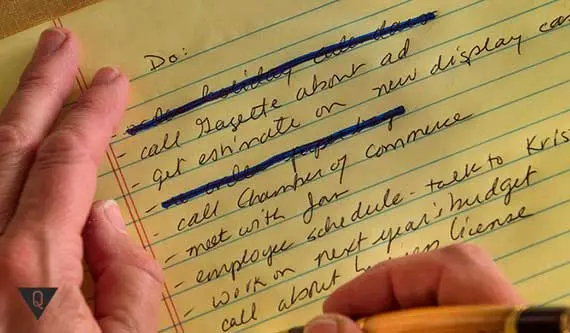 Do:
holiday
- call Gazette about ad
- get estimate on new display
- call Chamber of commerce
- meet with
- employee schedule - talk to Kris
- work on next year's budget
call about business license
Q